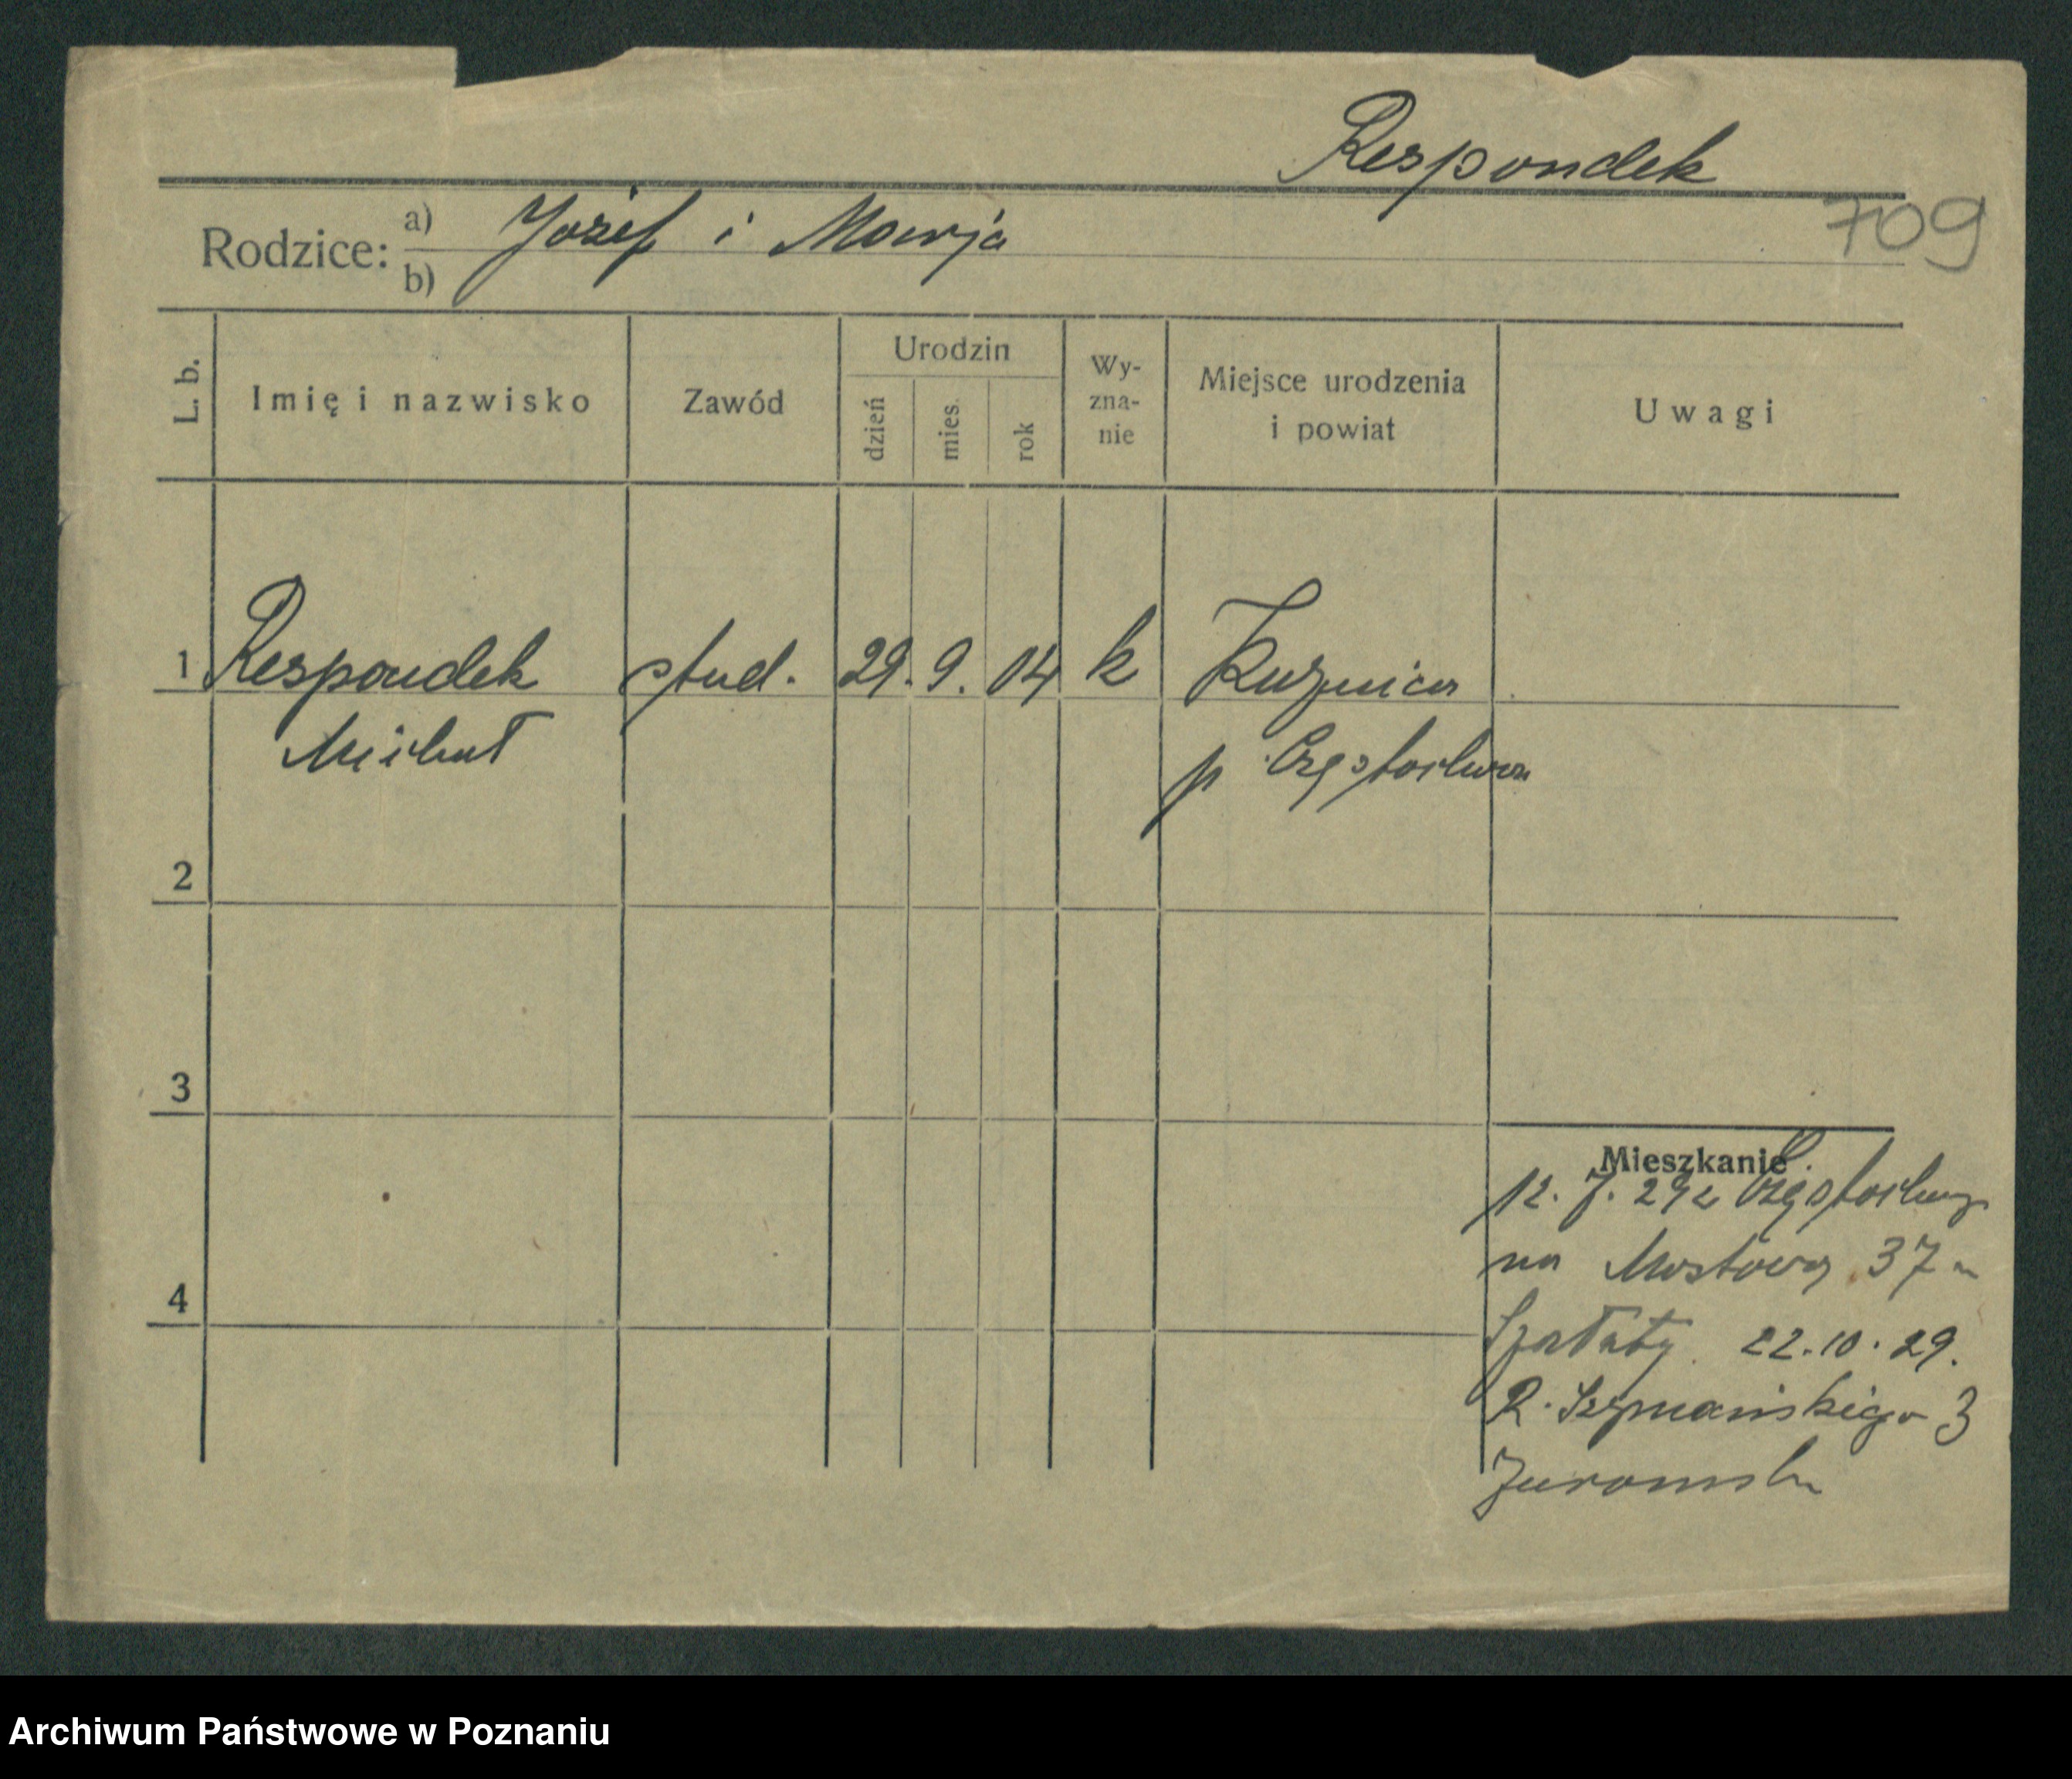 Respondek
709
Rodzice: a) Józef i Marja
b)
L. b.
Imię i nazwisko
Zawód
Urodzin
dzień
mies.
rok
Wy-
zna-
nie
Miejsce urodzenia
i powiat
Uwagi
1 Respondek stud. 29. 9. 04 k Kuźnica
Michał p. Częstochowa
2
3
4
Mieszkanie
12. 7. 29 z Częstochowy
na Mostowa 37 u
22.10.29.
R. Szymańskiego 3
Archiwum Państwowe w Poznaniu